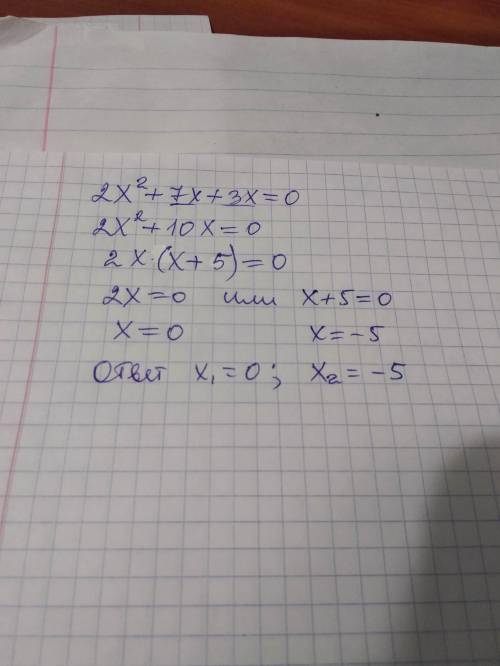 2x² + 7x + 3x = 0
2x² + 10x = 0
2x·(x + 5) = 0
2x = 0 или x + 5 = 0
x = 0 x = -5
Ответ x₁ = 0; x₂ = -5